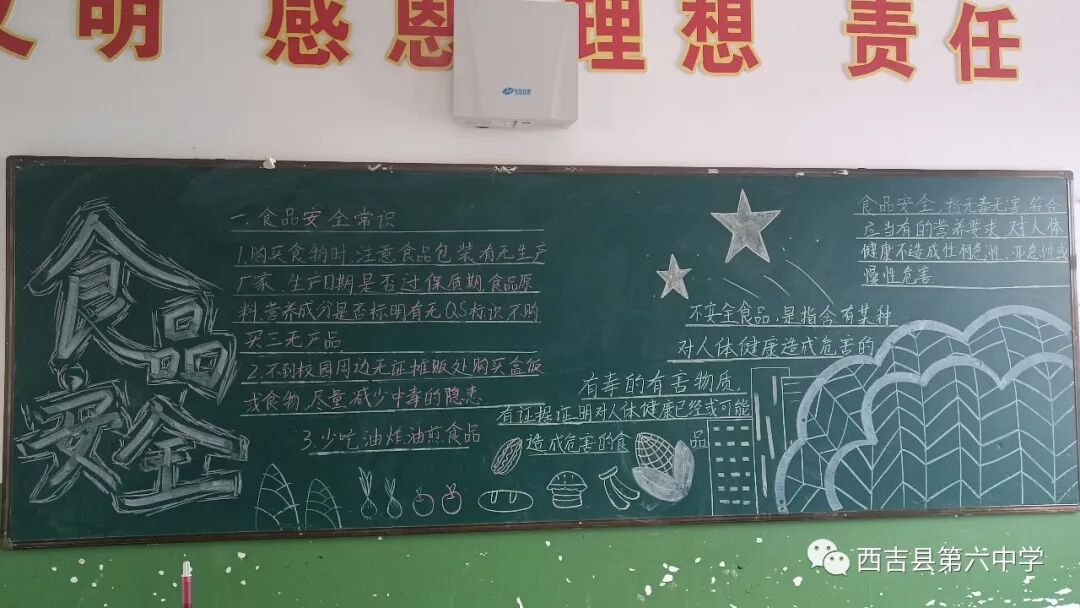 明 感恩 理想 责任
食品
安全
一.食品安全常识
1.购买食物时,注意食品包装有无生产
厂家、生产日期是否过保质期,食品原
料,营养成分是否标明有无QS标识,不购
买三无产品
2.不到校园周边无证摊贩处购买盒饭
或食物,尽量减少中毒的隐患
3.少吃油炸油煎食品
食品安全,指无毒无害,符合
应当有的营养要求,对人体
健康不造成任何急性、亚急性或
慢性危害
不安全食品,是指含有某种
对人体健康造成危害的
有毒的有害物质,
有证据证明对人体健康已经或可能
造成危害的食品
西吉县第六中学